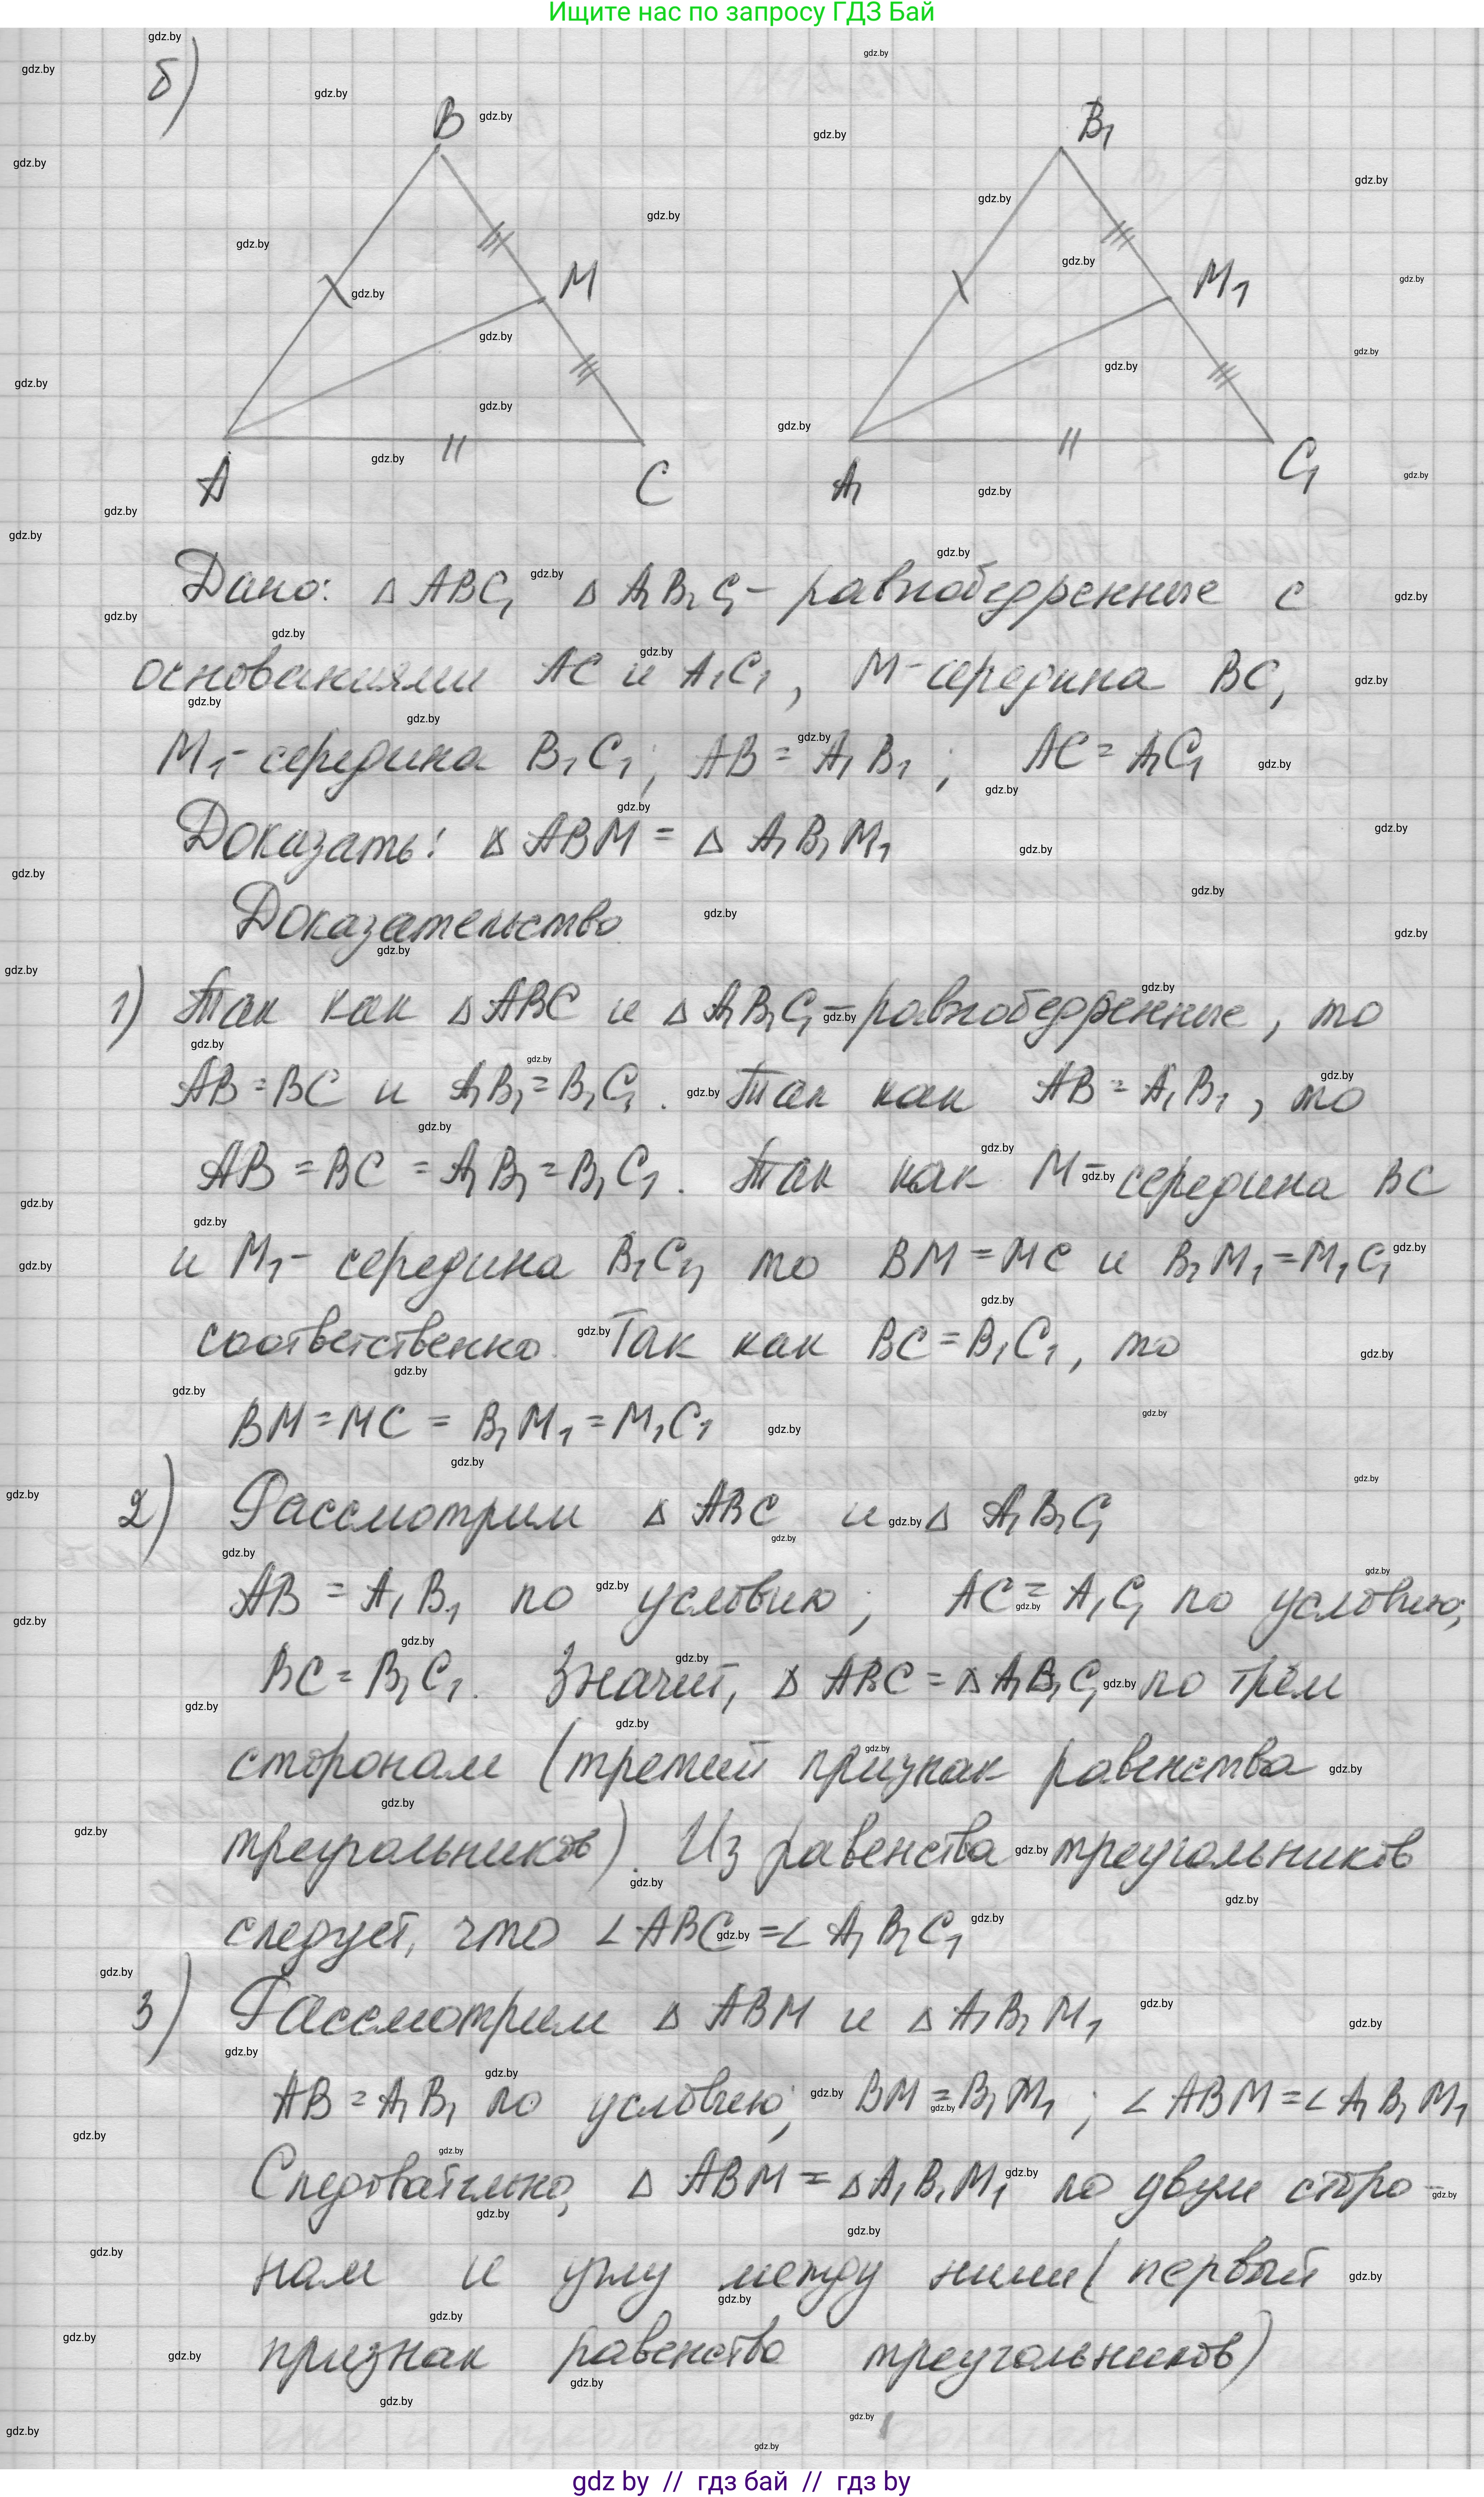 Ищите нас по запросу ГДЗ Бай
б)
B
B₁
M
M₁
A
C
A₁
C₁
Дано: △ ABC, △ A₁B₁C₁ - равнобедренные с
основаниями AC и A₁C₁, M - середина BC,
M₁ - середина B₁C₁; AB = A₁B₁; AC = A₁C₁
Доказать: △ ABM = △ A₁B₁M₁
Доказательство
1) Так как △ ABC и △ A₁B₁C₁ - равнобедренные, то
AB = BC и A₁B₁ = B₁C₁. Так как AB = A₁B₁, то
AB = BC = A₁B₁ = B₁C₁. Так как M - середина BC
и M₁ - середина B₁C₁, то BM = MC и B₁M₁ = M₁C₁
соответственно. Так как BC = B₁C₁, то
BM = MC = B₁M₁ = M₁C₁
2) Рассмотрим △ ABC и △ A₁B₁C₁
AB = A₁B₁ по условию; AC = A₁C₁ по условию;
BC = B₁C₁. Значит, △ ABC = △ A₁B₁C₁ по трём
сторонам (третий признак равенства
треугольников). Из равенства треугольников
следует, что ∠ ABC = ∠ A₁B₁C₁
3) Рассмотрим △ ABM и △ A₁B₁M₁
AB = A₁B₁ по условию; BM = B₁M₁; ∠ ABM = ∠ A₁B₁M₁
Следовательно, △ ABM = △ A₁B₁M₁ по двум сторо-
нам и углу между ними (первый
признак равенства треугольников)
gdz by // гдз бай // гдз by